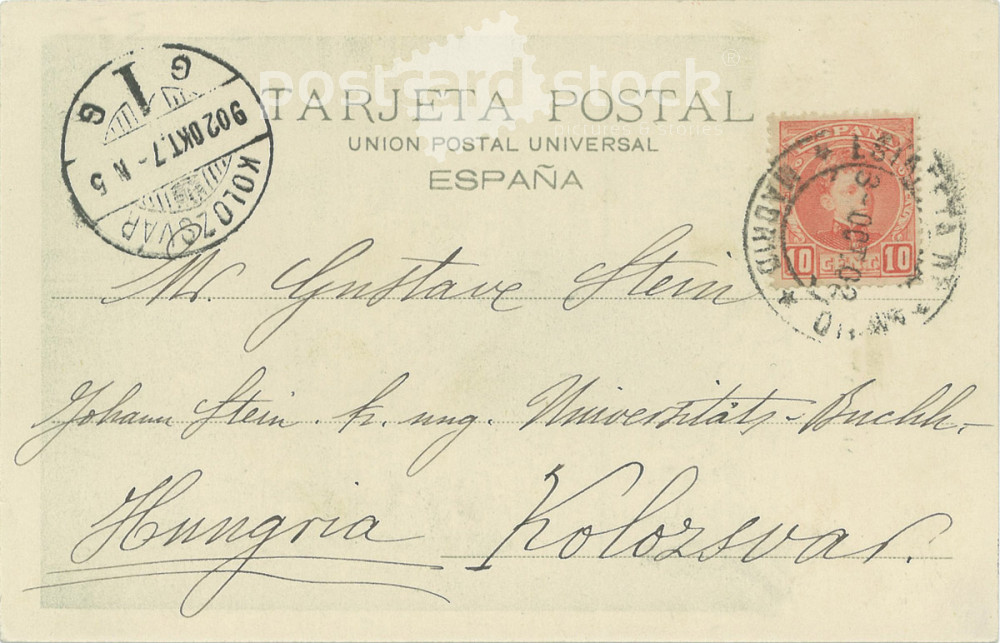 postcard stock ®
pictures & stories
TARJETA POSTAL
UNION POSTAL UNIVERSAL
ESPAÑA
G 1 G
902 OKT. 7 - N 5
KOLOZSVAR
ESPAÑA
10 CENT. 10
MADRID
3 OCT 02
Mr. Gustave Stein
Johann Stein. k. ung. Universitäts-Buchh.
Hungria Kolozsvar.